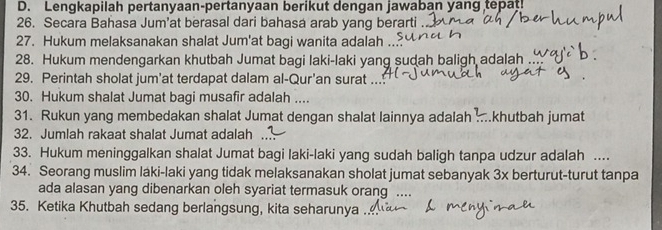 D. Lengkapilah pertanyaan-pertanyaan berikut dengan jawaban yang tepat!
26. Secara Bahasa Jum'at berasal dari bahasa arab yang berarti ..Jama'ah/berkumpul
27. Hukum melaksanakan shalat Jum'at bagi wanita adalah .... sunah
28. Hukum mendengarkan khutbah Jumat bagi laki-laki yang sudah baligh adalah .... wajib.
29. Perintah sholat jum'at terdapat dalam al-Qur'an surat .... Al-Jumuah ayat
30. Hukum shalat Jumat bagi musafir adalah ....
31. Rukun yang membedakan shalat Jumat dengan shalat lainnya adalah 2...khutbah jumat
32. Jumlah rakaat shalat Jumat adalah ....2
33. Hukum meninggalkan shalat Jumat bagi laki-laki yang sudah baligh tanpa udzur adalah ....
34. Seorang muslim laki-laki yang tidak melaksanakan sholat jumat sebanyak 3x berturut-turut tanpa
ada alasan yang dibenarkan oleh syariat termasuk orang ....
35. Ketika Khutbah sedang berlangsung, kita seharunya ....diam & menyimak